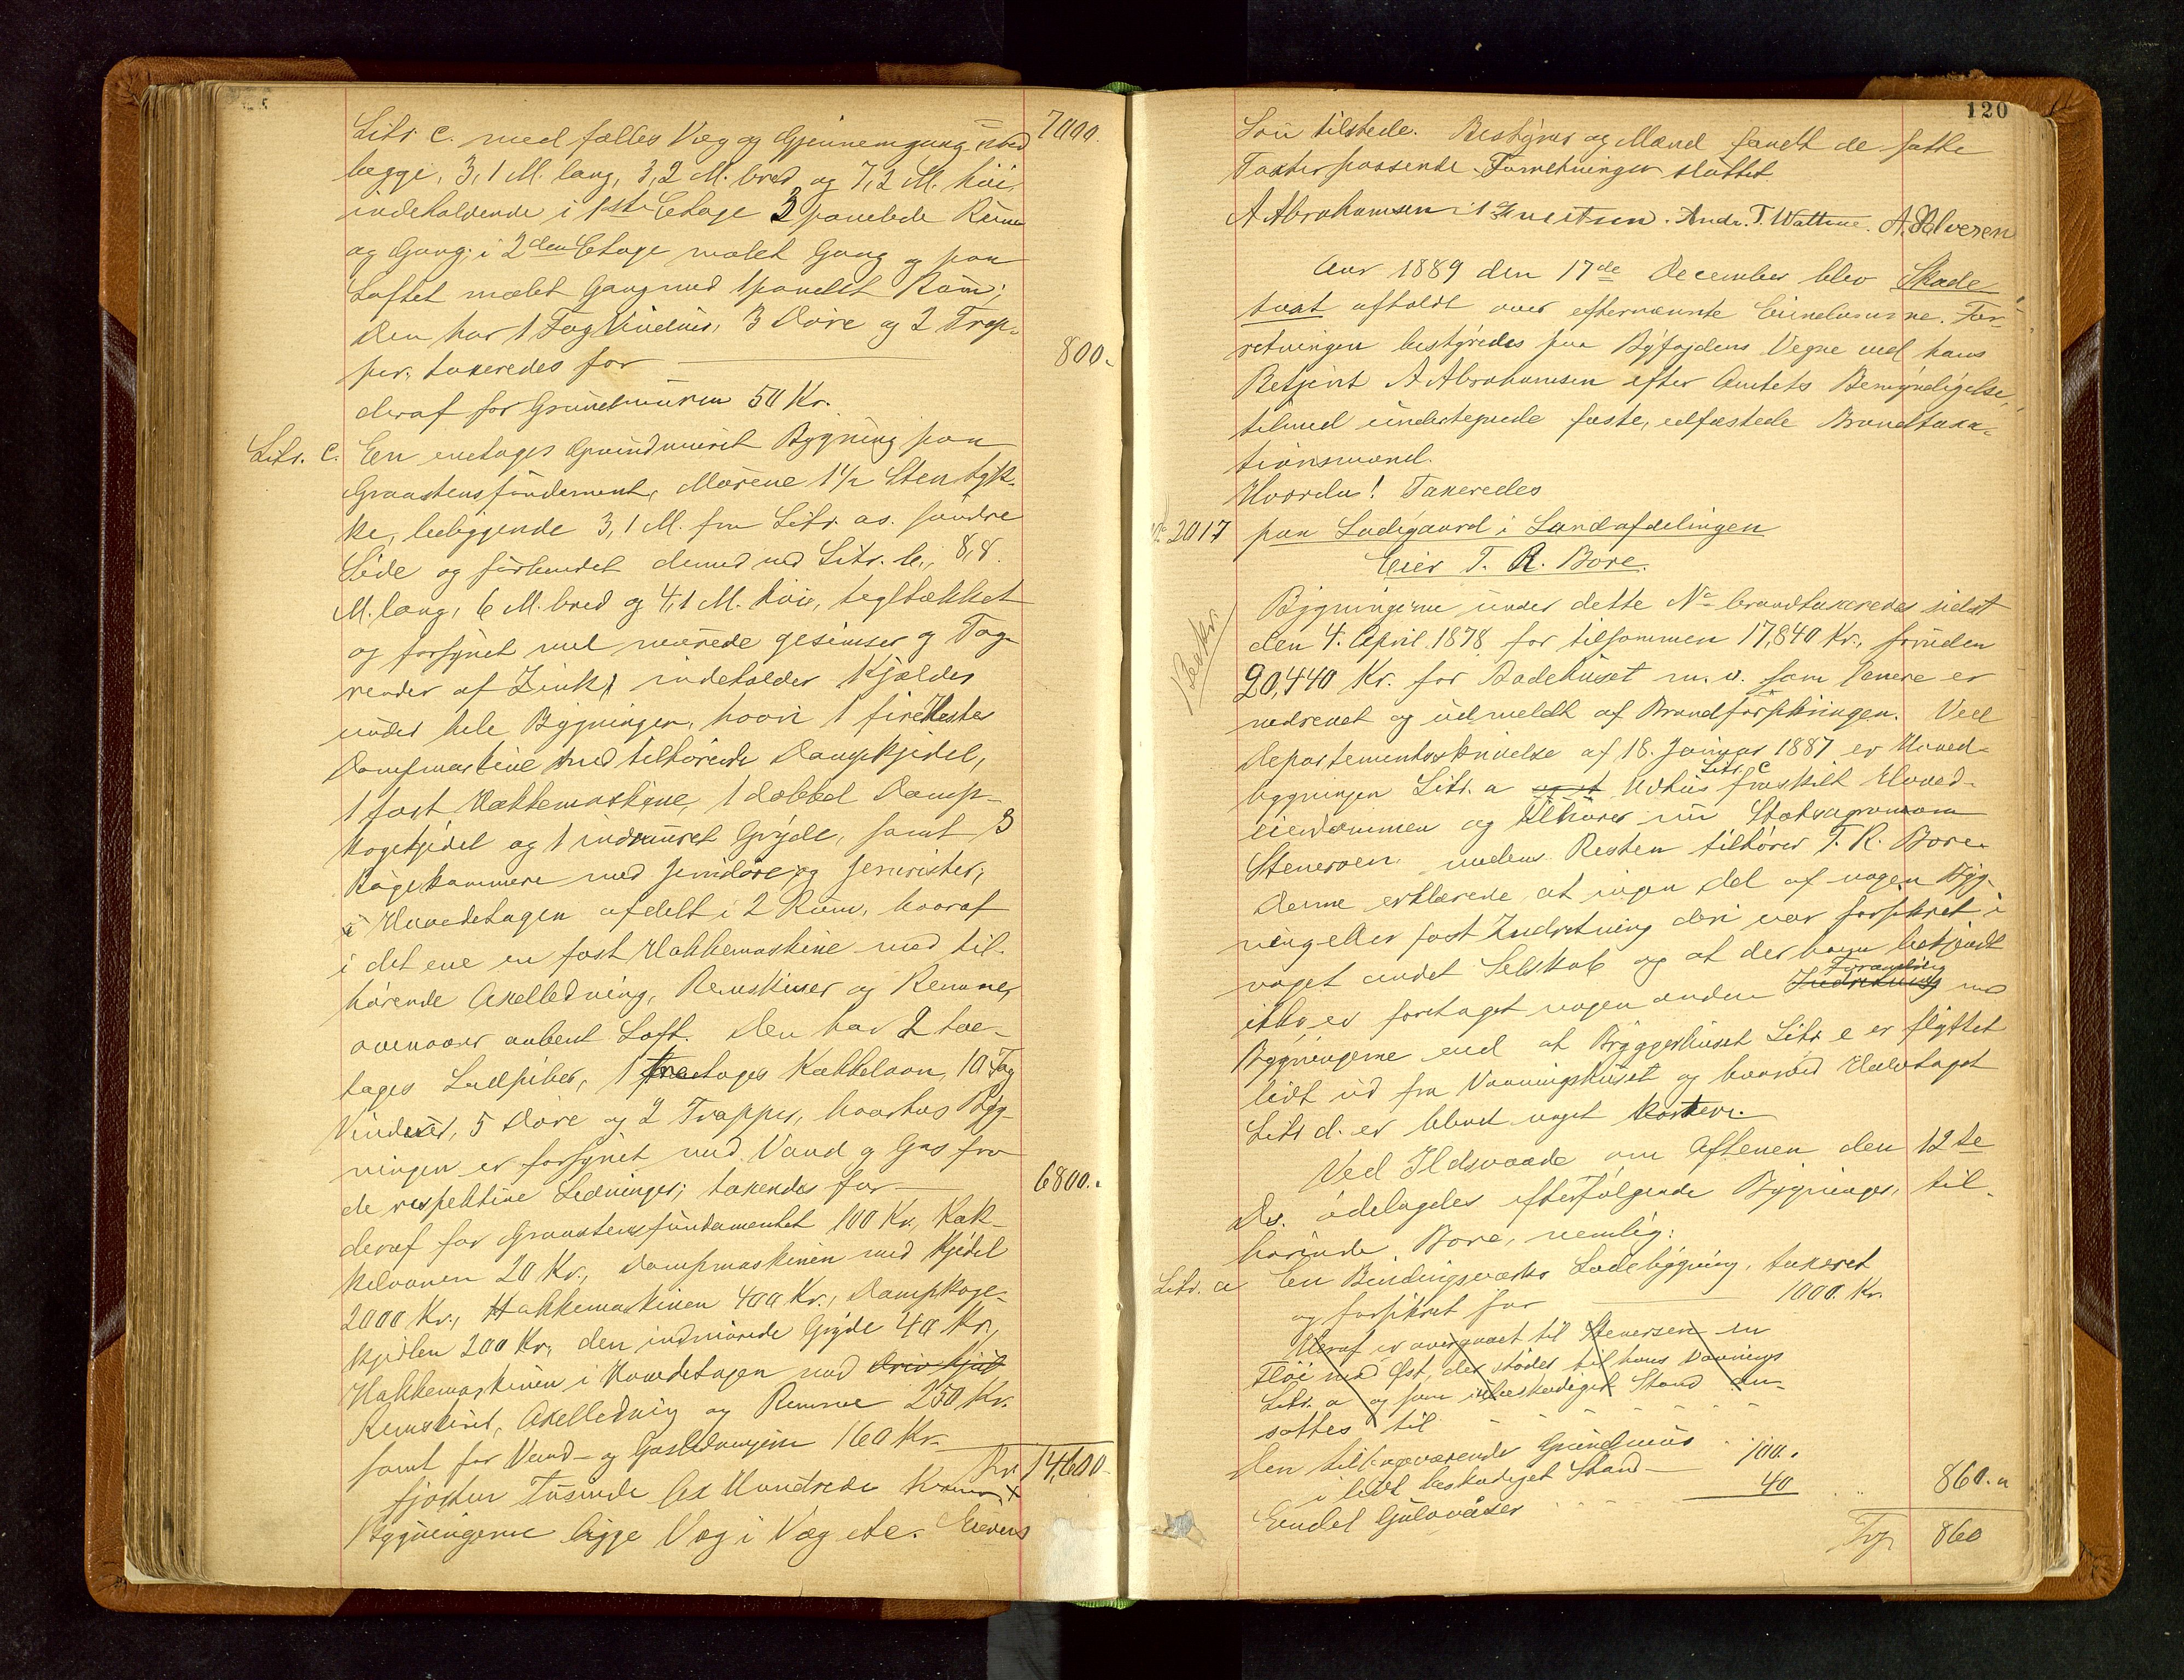 7000.
Litr. c. med fælles Væg og Gjennemgang
begge, 3,1 M. lang, 3,2 M. bred og 7,2 M. høi,
indeholdende i 1ste Etage 3 panelede Rum
og Gang; i 2den Etage malet Gang og paa
Loftet malet Gang med 1 panelet Rum;
den har 1 Fag Vinduer, 3 Døre og 2 Trap-
per, taxeredes for — 800.
deraf for Grundmuren 50 Kr.
Litr. C. Een enetages Grundmuret Bygning paa
Graastensfundament, Murene 1½ Sten tyk-
ke, beliggende 3,1 M. fra Litr. as. søndre
Side og forbundet dermed ved Litr. b., 8,8
M. lang, 6 M. bred og 4,1 M. høi, tegltækket
og forsynet med murede gesimser og Tag-
render af Zink, indeholder Kjælder
under hele Bygningen, hvori 1 fire Hestes
Dampmaskine med tilhørende Dampkjedel,
1 fast Hakkemaskine, 1 dobbel Damp-
kogekjedel og 1 indmuret Gryde, samt 3
Røgekammere med Jerndøre og Jernrister;
i Hovedetagen afdelt i 2 Rum, hvoraf
i det ene en fast Hakkemaskine med til-
hørende Axelledning, Remskiver og Remme,
ovenover aabent Loft. Den har 2 toe-
tages Ludpiber, 1 etages Kakkelovn, 10 Fag
Vinduer, 5 Døre og 2 Trapper, hvorhos Byg-
ningen er forsynet med Vand og Gas fra
de respektive Ledninger; taxeredes for — 6800.
deraf for Graastensfundamentet 100 Kr., Kak-
kelovnen 20 Kr., Dampmaskinen med Kjedel
2000 Kr., Hakkemaskinen 400 Kr., Dampkoge-
kjedlen 200 Kr., den indmurede Gryde 40 Kr.,
Hakkemaskinen i Hovedetagen med
Remskive, Axelledning og Remme 250 Kr.
samt for Vand- og Gasledningerne 160 Kr.
Kr. 14,600
fjorten Tusinde sex Hundrede Kroner
Bygningerne ligge Væg i Væg etc. Eierens
120
Søn tilstede. Bestyrer og Mænd fandt de satte
Taxter passende. Forretningen sluttet.
A Abrahamsen Andr. T. Wattne. A. Salvesen
Aar 1889 den 17de December blev Skade-
taxt afholdt over efternævnte Eiendomme. For-
retningen bestyredes paa Byfogdens Vegne ved hans
Betjent A Abrahamsen efter Amtets Bemyndigelse,
tilmed undertegnede faste, edfæstede Brandtaxa-
tionsmænd.
Hvorda! Taxeredes
No 2017 paa Ladegaard i Landafdelingen
Eier T. R. Bore.
Bygningerne under dette No brandtaxeredes sidst
den 4. April 1878 for tilsammen 17,840 Kr., foruden
20,440 Kr. for Badehuset m. v. som senere er
nedrevet og udmeldt af Brandforsikringen. Ved
Departementsskrivelse af 18. Januar 1887 er Hoved-
bygningen Litr. a og et Udhus Litr. c fraskilt Hoved-
eiendommen og tilhører nu Statsagronom
Stenersen medens Resten tilhører T. R. Bore.
Denne erklærede, at ingen Del af nogen Byg-
ning eller fast Indretning deri var forsikret i
noget andet Selskab og at der ham bekjendt
ikke er foretaget nogen anden Indretning Forandring med
Bygningerne end at Bryggerhuset Litr. e er flyttet
lidt ud fra Vaaningshuset og hvorved Halvtaget
Litr d. er blevet noget kortere.
Ved Ildsvaade om Aftenen den 12te
Ds. ødelagdes efterfølgende Bygninger, til-
hørende Bore, nemlig:
Litr. a En Bindingsværks Ladebygning, taxeret
og forsikret for — 1000 Kr.
Heraf er overgaaet til Stenersen en
Fløi mod Øst, der støder til hans Vaanings
Litr. a og som i ubeskadiget Stand an-
sattes til
Den tilbageværende Grundmur
i lidt beskadiget Stand — 100.
Eendel Gulvaaser 40 860.
Trsp. 860